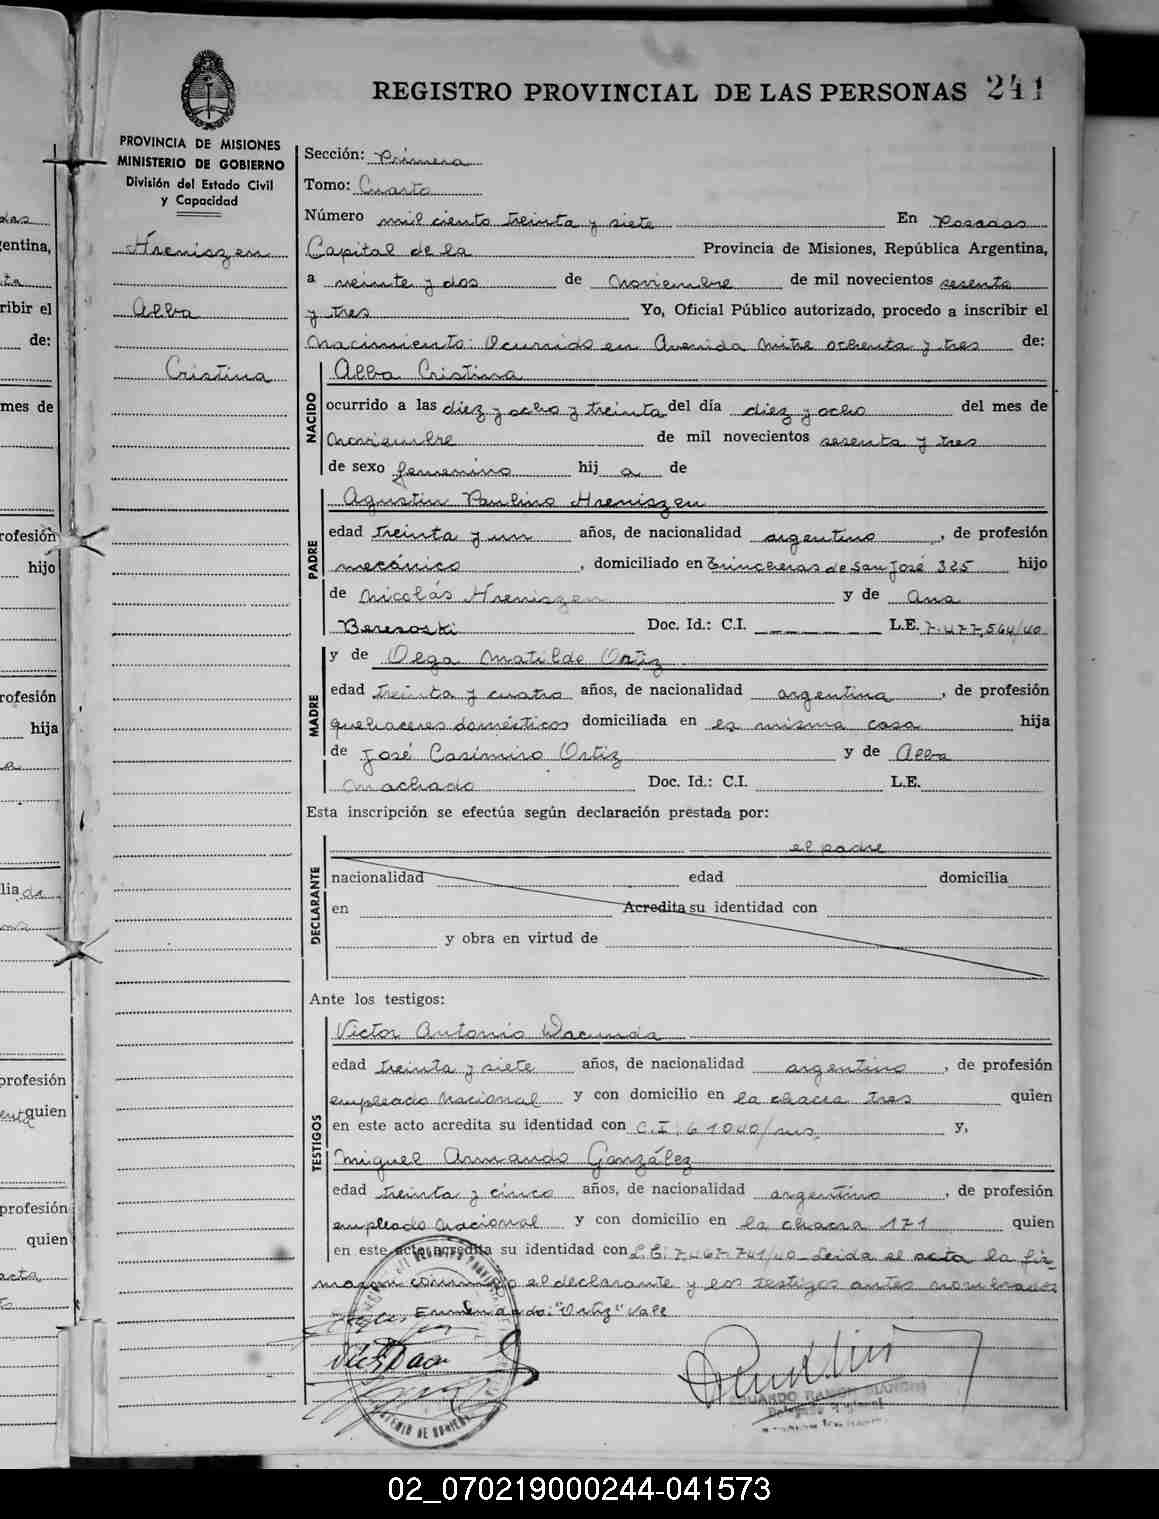 REGISTRO PROVINCIAL DE LAS PERSONAS 241
PROVINCIA DE MISIONES
MINISTERIO DE GOBIERNO
División del Estado Civil
y Capacidad
Hreniszen
Alba
Cristina
Sección: Primera
Tomo: Cuarto
Número mil ciento treinta y siete En Posadas
Capital de la Provincia de Misiones, República Argentina,
a veinte y dos de Noviembre de mil novecientos sesenta
y tres Yo, Oficial Público autorizado, procedo a inscribir el
Nacimiento: Ocurrido en Avenida Mitre ochenta y tres de:
NACIDO
Alba Cristina
ocurrido a las diez y ocho y treinta del día diez y ocho del mes de
Noviembre de mil novecientos sesenta y tres
de sexo femenino hij a de
PADRE
Agustin Paulino Hreniszen
edad treinta y un años, de nacionalidad argentino, de profesión
mecánico, domiciliado en Trincheras de San José 325 hijo
de Nicolás Hreniszen y de Ana
Beresoski Doc. Id.: C.I. L.E. 7.477,564/40
MADRE
y de Olga Matilde Ortiz
edad treinta y cuatro años, de nacionalidad argentina, de profesión
quehaceres domésticos domiciliada en la misma casa hija
de José Casimiro Ortiz y de Alba
Machado Doc. Id.: C.I. L.E.
Esta inscripción se efectúa según declaración prestada por:
DECLARANTE
el padre
nacionalidad edad domicilia
en Acredita su identidad con
y obra en virtud de
Ante los testigos:
TESTIGOS
Victor Antonio
edad treinta y siete años, de nacionalidad argentino, de profesión
empleado Nacional y con domicilio en la chacra tres quien
en este acto acredita su identidad con C.I. 61040/mis. y,
Miguel Armando González
edad treinta y cinco años, de nacionalidad argentino, de profesión
empleado Nacional y con domicilio en la chacra 171 quien
en este acto acredita su identidad con L.E. 7.467.741/40 Leida el acta la fir-
maron conmigo el declarante y los testigos antes nombrados
Enmendado: "Ortiz" Vale
EDUARDO RAMON BIANCHI
02_070219000244-041573